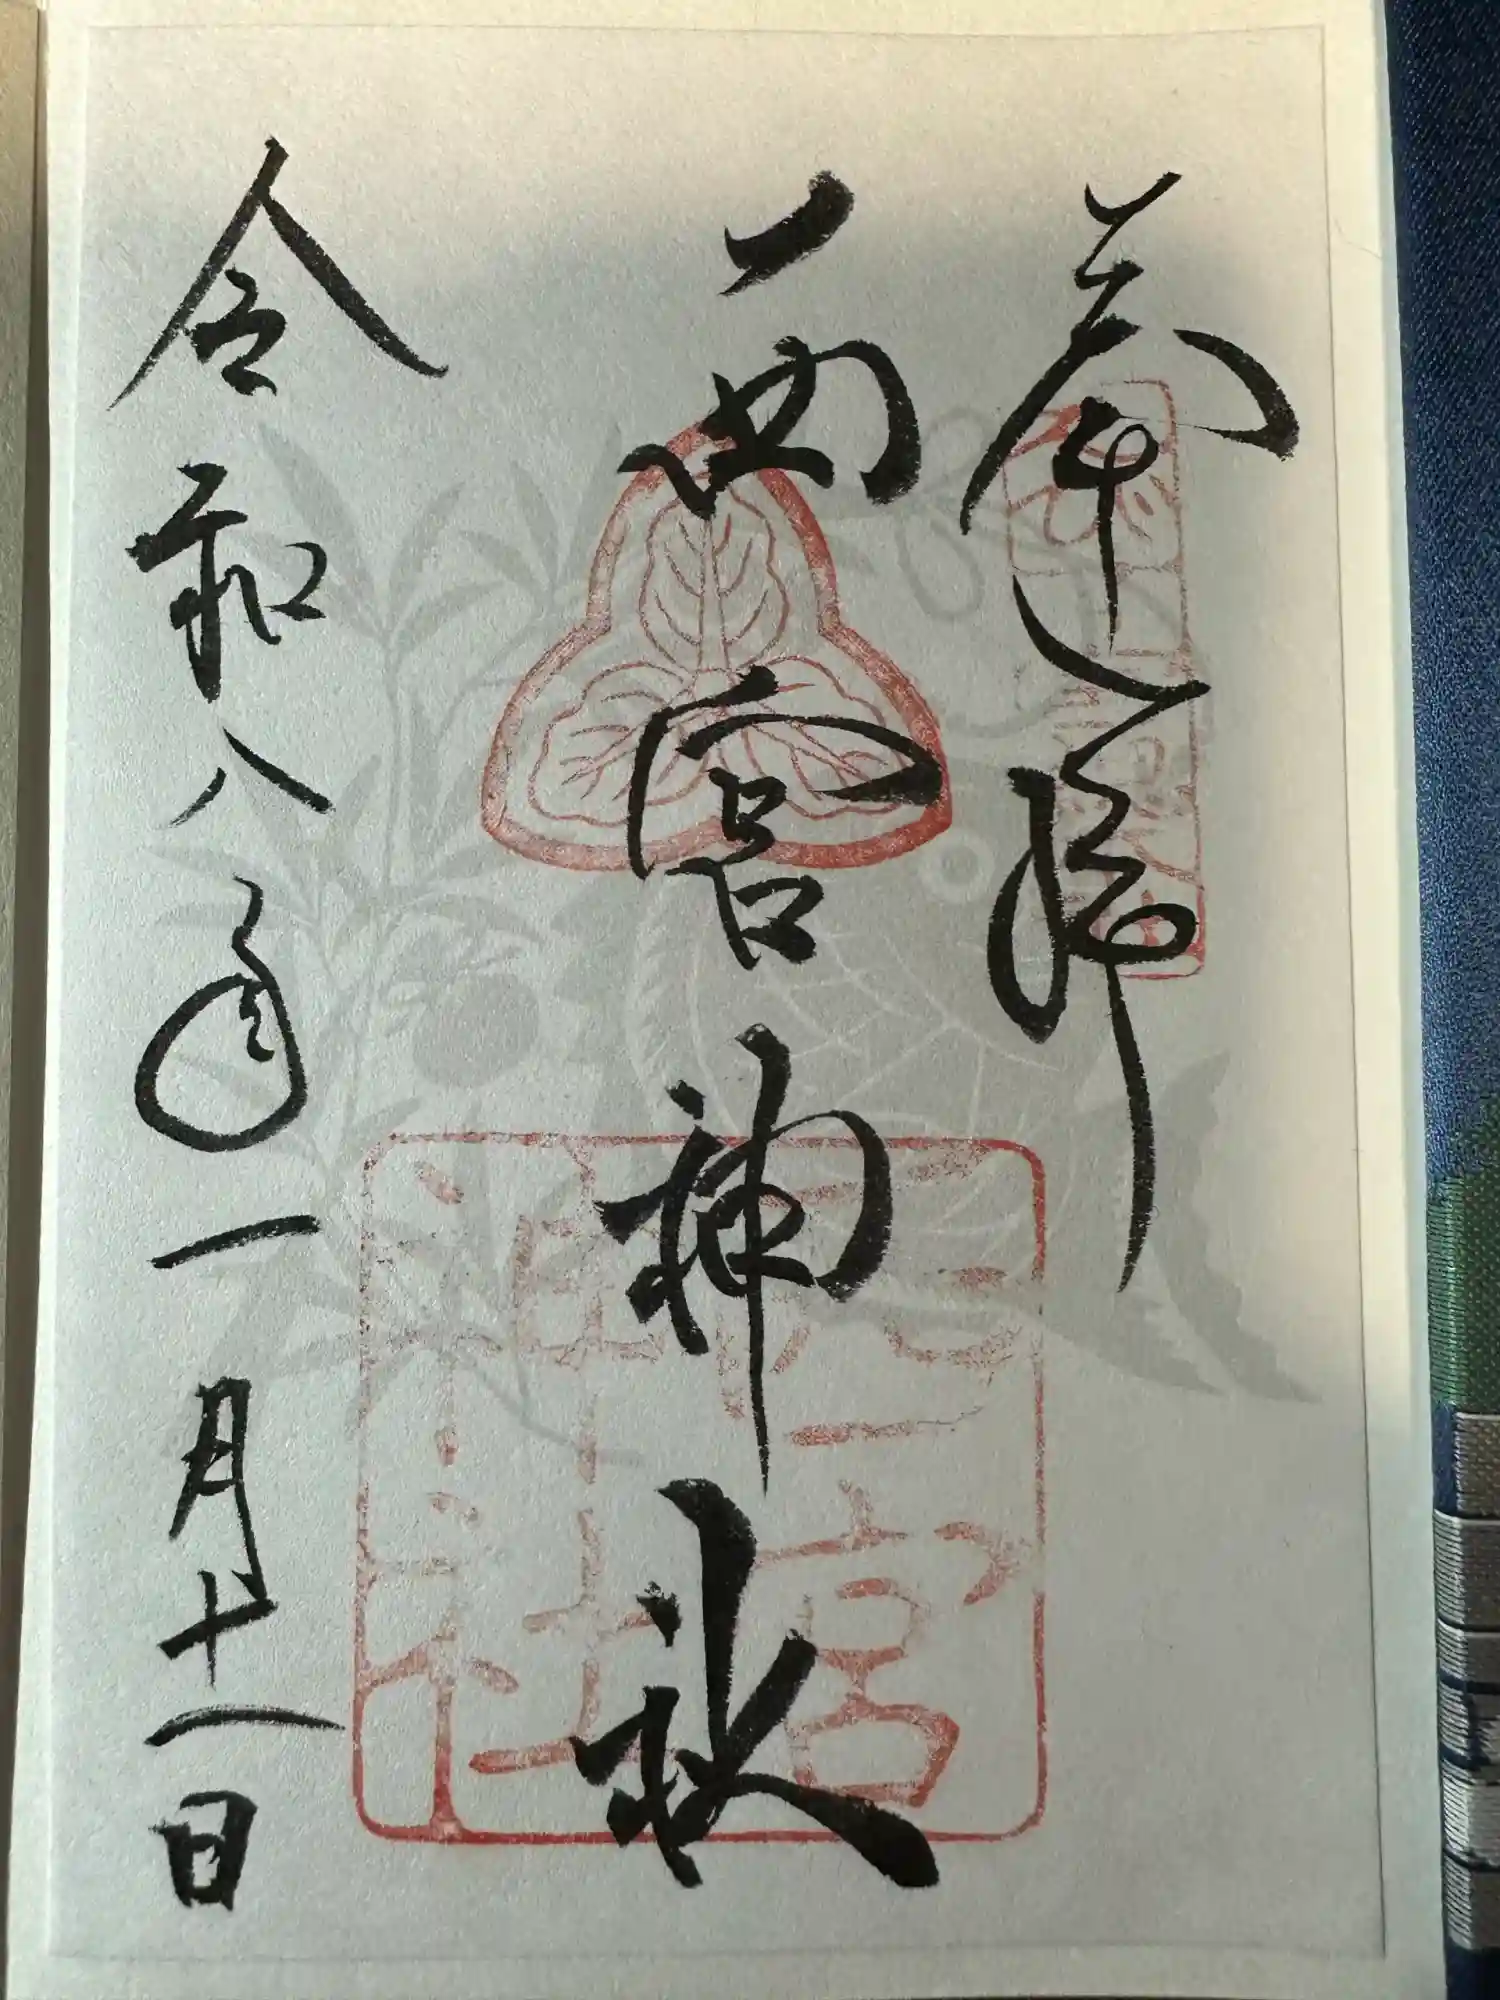 奉拝
西宮神社
令和八年一月十一日